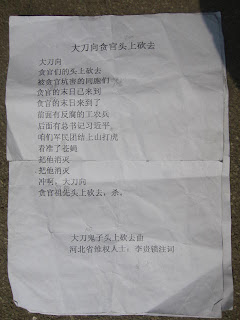 大刀向贪官头上砍去
大刀向
贪官们的头上砍去
被贪官坑害的同胞们
贪官的末日已来到
贪官的末日来到了
前面有反腐的工农兵
后面有总书记习近平
咱们军民团结上山打虎
看准了苍蝇
把他消灭
把他消灭
冲啊、大刀向
贪官祖先头上砍去,杀。
大刀鬼子头上砍去曲
河北省维权人士:李贵锁注词